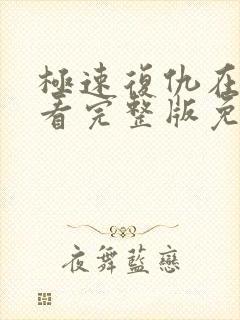 極速復仇在
看完整版免
夜舞藍戀